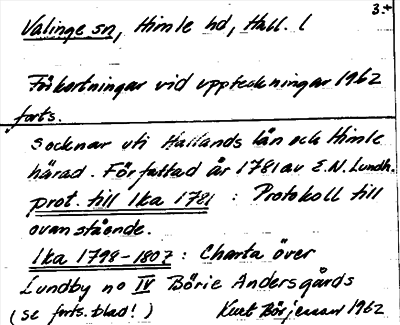 3.
Valinge sn, Himle hd, Hall. l
Förkortningar vid uppteckningar 1962
forts.
socknar uti Hallands län och Himle
härad. Författad år 1781 av E.N. Lundh.
prot. till lka 1781 : Protokoll till
ovanstående.
lka 1798-1807 : Charta över
Lundby no IV Börie Andersgårds
(se forts. blad!) Kurt Börjesson 1962